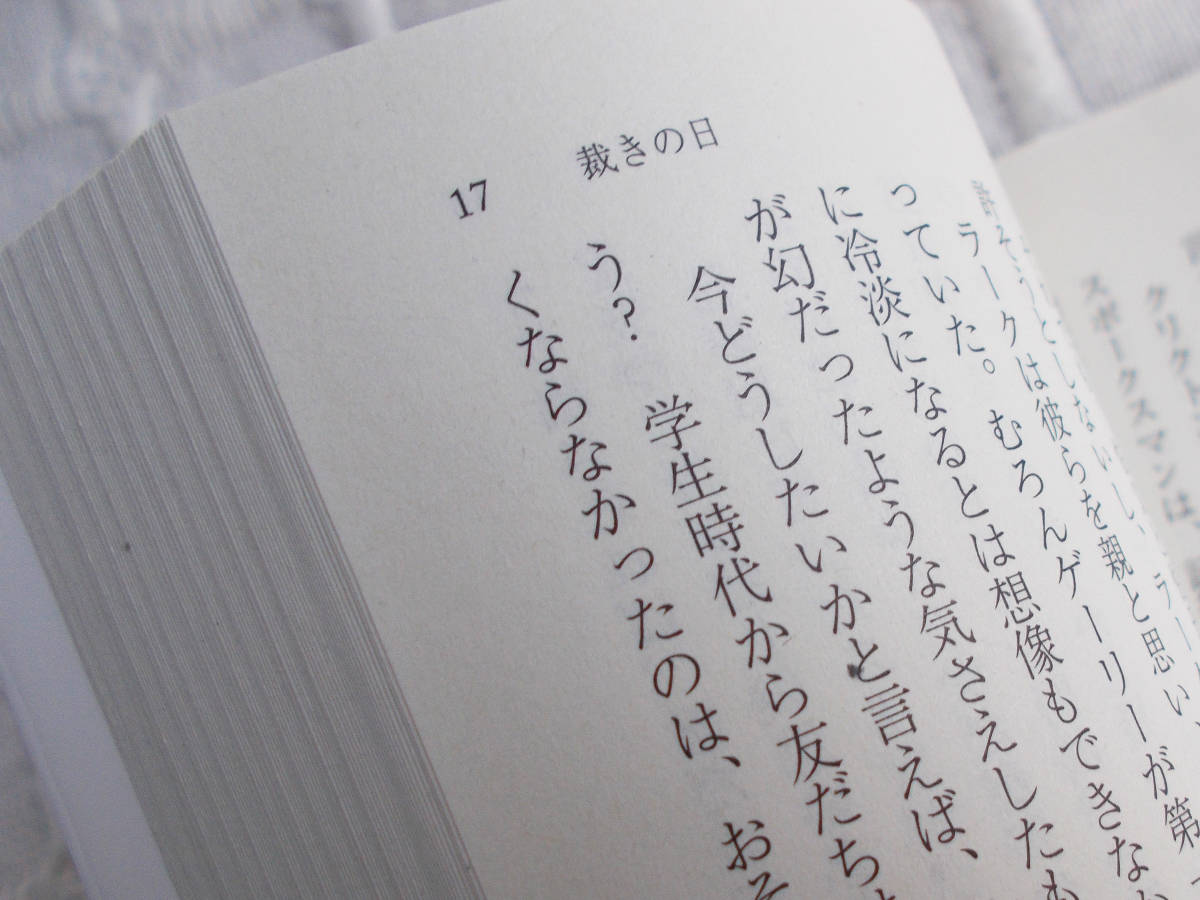 クリクト
スポークスマンは、
そうとしないし、ラー
ラークは彼らを親と思い、
っていた。むろんゲーリーが第
に冷淡になるとは想像もできなか
が幻だったような気さえしたも
今どうしたいかと言えば、
う? 学生時代から友だち
くならなかったのは、おそ
17 裁きの日